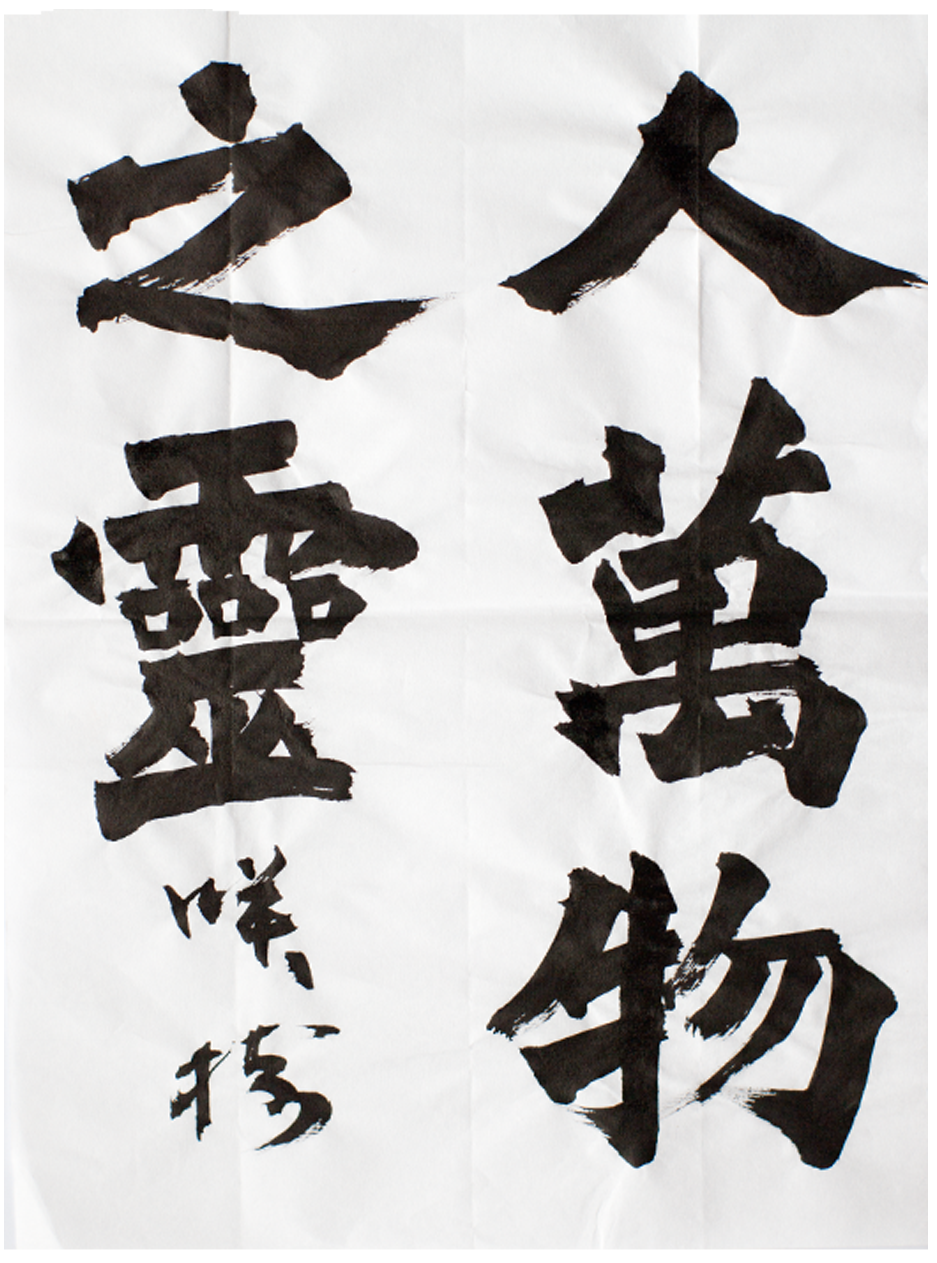 人萬物
之靈
咲